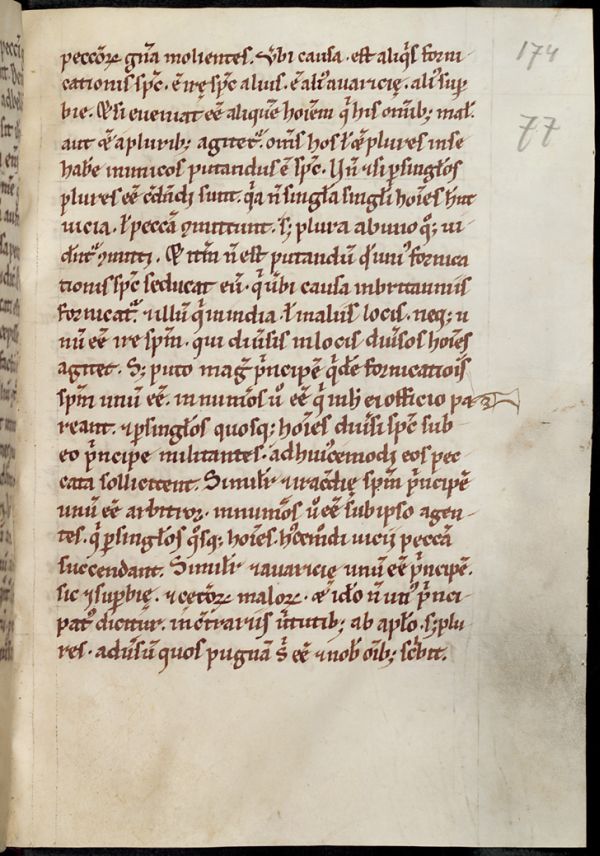 174
77
peccōꝝ gn̄a molientes. Vbi causa. est aliq̇s forni
cationis sp̄c. ē irę sp̄c alius. ē ali᷒ auaricię. ali᷒ suꝑ
bie. Et si eueniat eē aliquē hoīem q̇ his om̄ib; mal̄.
aut &̄ a plurib; agitet᷑. om̄s hos ł &̄ plures in se
habe᷑ inimicos putandus ē sp̄c. Vn̄ ⁊ si ꝑ singłos
plures eē c̄dn̄di sunt. q̇a n̄ singła singłi hoīes hn̄t
uicia. ł peccā ꝯmittunt. s; plura ab uno q̊; ui
dn̄t᷑ ꝯmitti. Et itm̄ n̄ est putandū qd̓ un᷒ fornica
tionis sp̄c seducat eū. q̇ ubi causa in britanniis
fornicat᷑. ⁊ illū q̇ in india. ł in aliis locis. neq; u
nū eē ire sp̄m. qui diūsis in locis diuīsos hoīes
agitet. S; puto mag̊ p̓ncipē q̇dē fornicatiois
sp̄m unū eē. innumōs ū eē q̇ in h̓ ei officio pa
reant. ⁊ ꝑ singłos quosq; hoīes diūsi sp̄c sub
eo p̓ncipe militantes. ad hui᷒cemodi eos pec
cata sollicitent. Similit̓ ⁊ iracdię sp̄m p̓ncipē
unū eē arbitror. innumōs ū eē sub ipso agen
tes. q̇ ꝑ singłos q̊sq; hoīes. hi᷒cemodi uicii peccā
succendant. Similit̓ ⁊ auaricię unū eē p̓ncipē.
sic ⁊ suꝑbię. ⁊ cetōꝝ maloꝝ. &̄ iđo n̄ un᷒ p̓nci
pat᷒ dicitur. in ꝯtrariis ūtutib; ab aplo. s; plu
res. aduīsū quos pugnā s̓ eē ⁊ nob̓ oīb; sc̓bit.